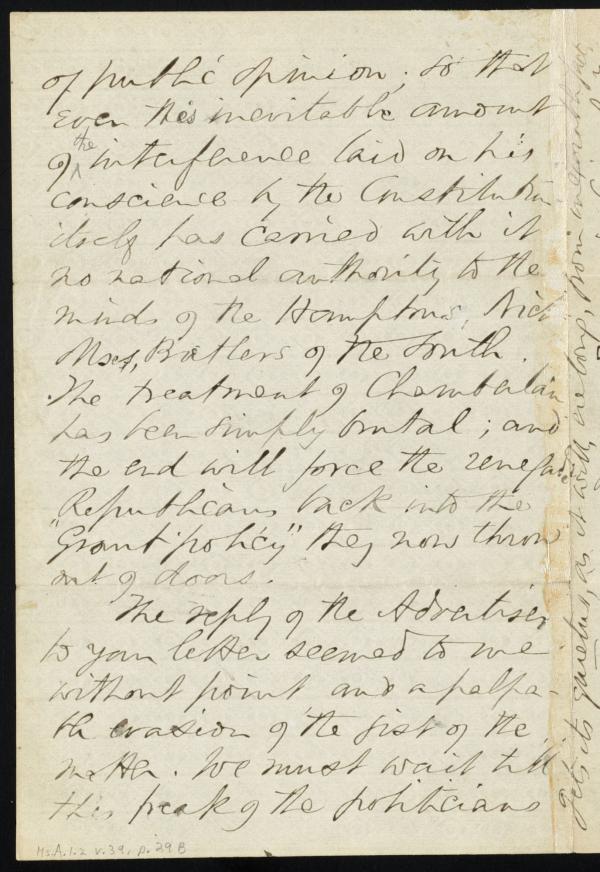 of public opinion; so that
even this inevitable amount
of the interference laid on his
conscience by the Constitution
itself has carried with it
no national authority to the
minds of the Hamptons, Nich
Butlers of the South.
The treatment of Chamberlain
has been simply brutal; and
the end will force the renegade
Republicans back into the
"Grant policy" they now throw
out of doors.
The reply of the Advertiser
to your letter seemed to me
without point and a palpa-
ble evasion of the gist of the
matter. We must wait till
this freak of the politicians
gets its quietus, as it will, ere long, from
Ms.A.1.2 v.39, p.29B